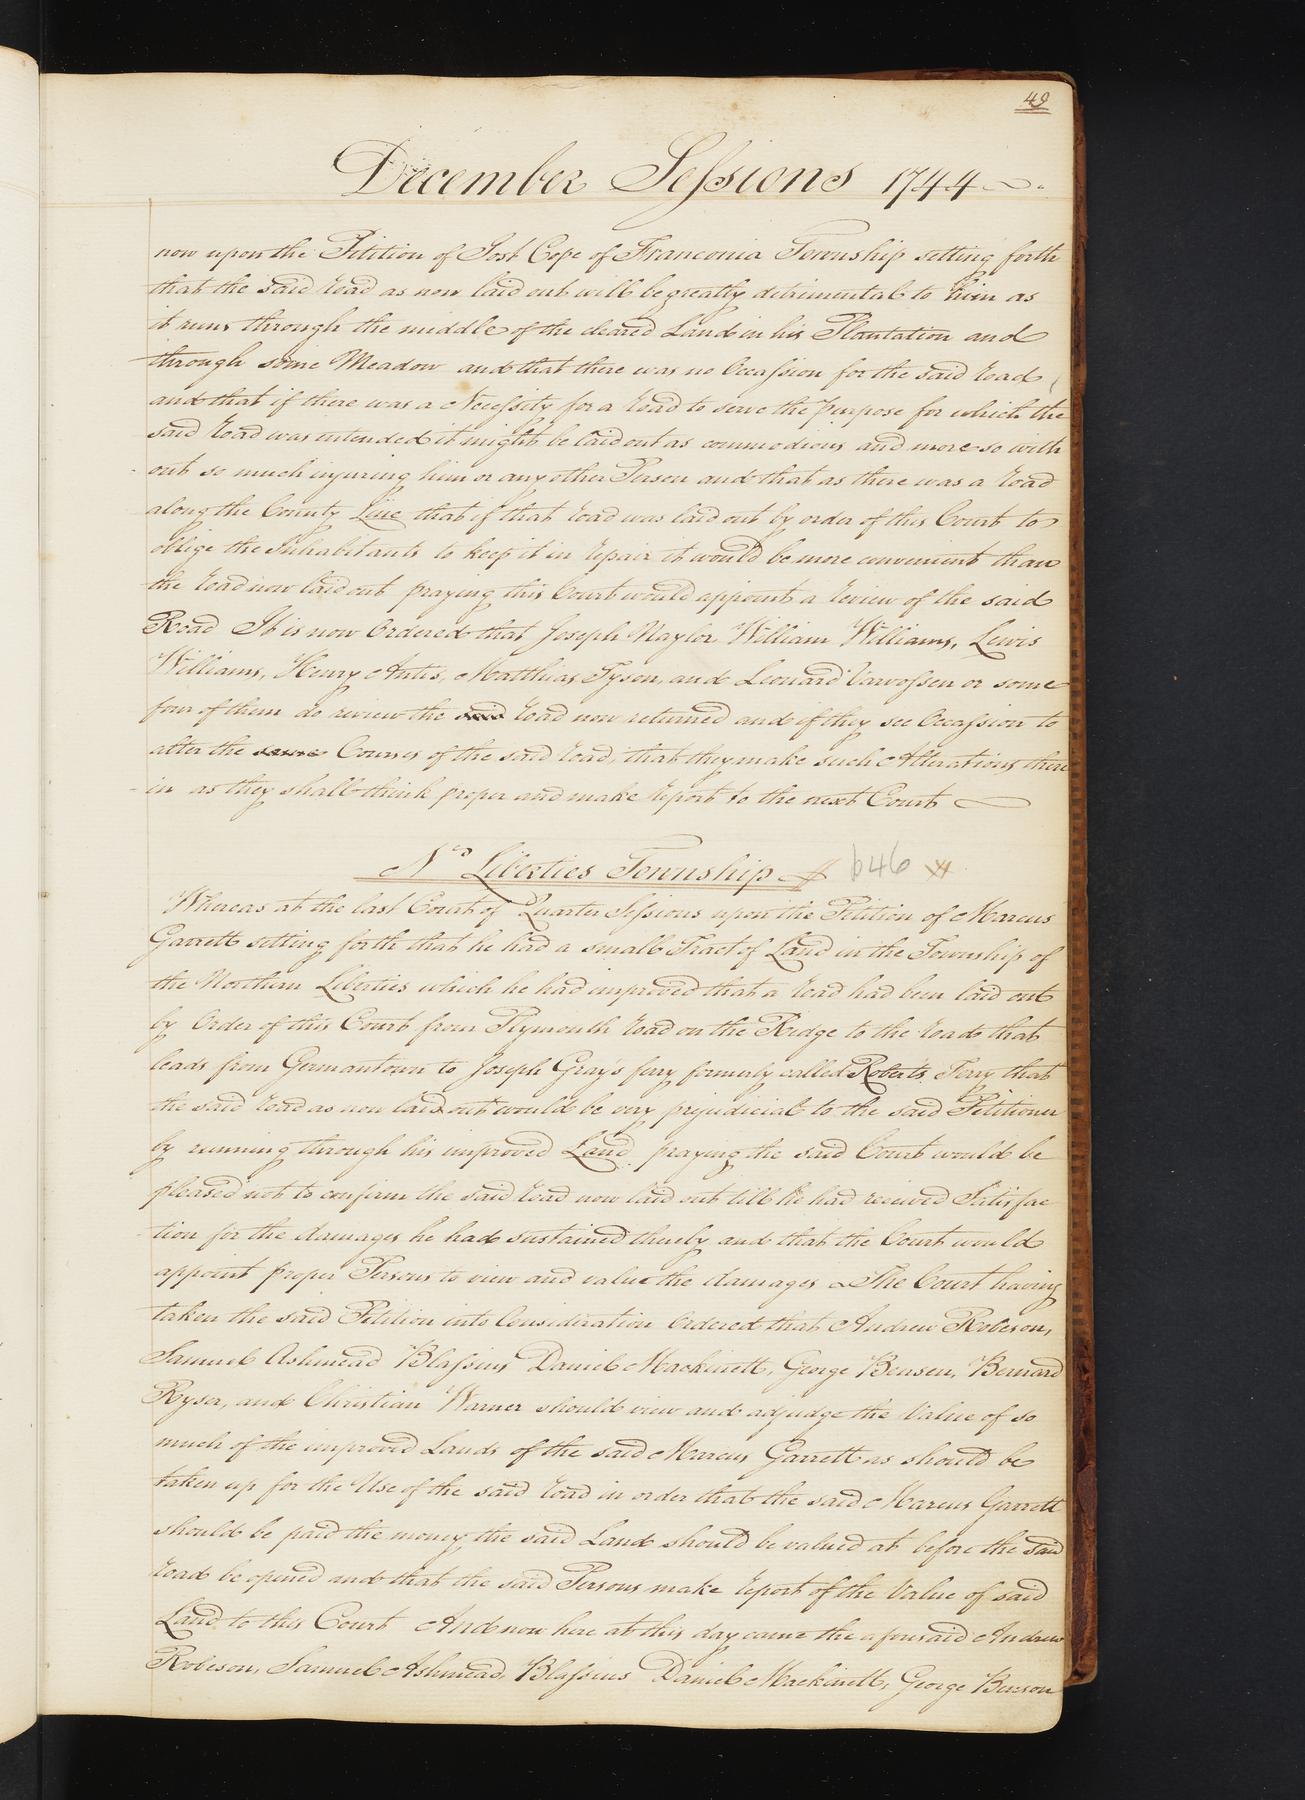 49
December Sessions 1744
now upon the Petition of Jost Cope of Franconia Township setting forth
that the said road as now laid out will be greatly detrimental to him as
it runs through the middle of the cleared Land in his Plantation and
through some Meadow and that there was no Occassion for the said road
and that if there was a Necessity for a road to serve the purpose for which the
said road was intended it might be laid out as commodious and more so with
out so much injuring him or any other Person and that as there was a road
along the County Line that if that road was laid out by order of this Court to
oblige the Inhabitants to keep it in repair it would be more convenient than
the road now laid out praying this Court would appoint a review of the said
Road It is now Ordered that Joseph Naylor William Williams, Lewis
Williams, Henry Antis, Matthias Tyson, and Leonard Vanfossen or some
four of them do review the said road now returned and if they see Occassion to
alter the same Courses of the said road, that they make such Alterations there
in as they shall think proper and make report to the next Court
No Liberties Township 646
Whereas at the last Court of Quarter Sessions upon the Petition of Marcus
Garrett setting forth that he had a small Tract of Land in the Township of
the Northern Liberties which he had improved that a road had been laid out
by Order of this Court from Plymouth road on the Ridge to the road that
leads from Germantown to Joseph Gray's ferry formerly called Roberts Ferry that
the said road as now laid out would be very prejudicial to the said Petitioner
by running through his improved Land praying the said Court would be
pleased not to confirm the said road now laid out till he had received Satisfac
tion for the damages he had sustained thereby and that the Court would
appoint proper Persons to view and value the damages The Court having
taken the said Petition into Consideration Ordered that Andrew Robeson,
Samuel Ashmead Blassius Daniel Mackinett, George Bensen, Bernard
Ryser, and Christian Warner should view and adjudge the Value of so
much of the improved Lands of the said Marcus Garrett as should be
taken up for the Use of the said road in order that the said Marcus Garrett
should be paid the money the said Land should be valued at before the said
road be opened and that the said Persons make report of the Value of said
Land to this Court And now here at this day came the aforesaid Andrew
Robeson, Samuel Ashmead, Blassius Daniel Mackinett, George Benson